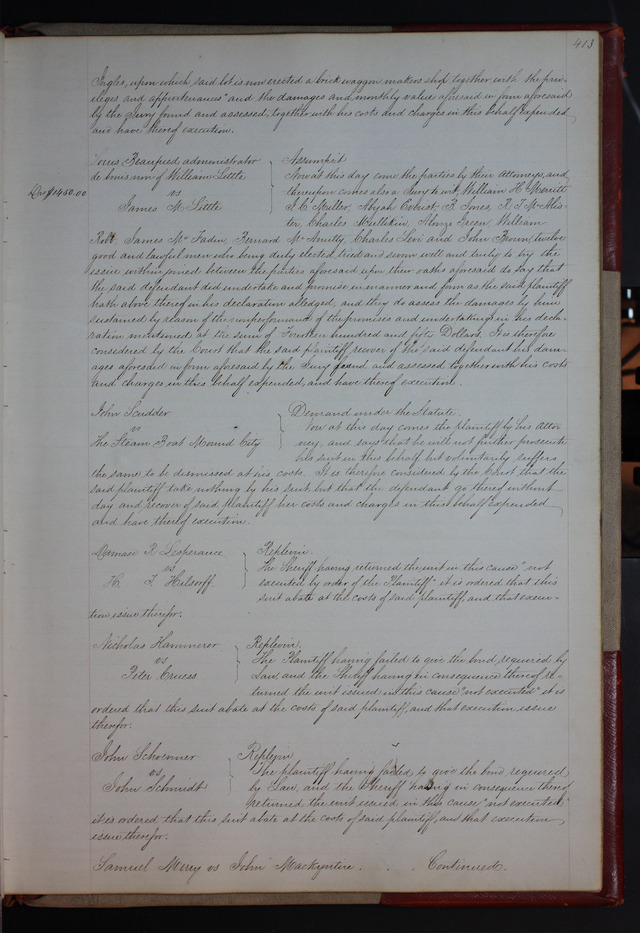 413
Ingles, upon which said lot is now erected a brick waggon makers shop together with the priv-
ileges and appurtenances and the damages and monthly value aforesaid in form aforesaid
by the Jury found and assessed, together with his costs and charges in this behalf expended
and have thereof execution.
Louis Beaupied administrator } Assumpsit
de bonis non of William Little } Now at this day come the parties by their Attorneys, and
Dms $1450.00
vs } thereupon comes also a Jury to wit, William H Merritt
James M Little } S. C. Muller, Abijah Robust, R Jones, R T McAllis-
ter, Charles Mullikin, Alonzo Green William
Robt James McFaden, Bernard McAnulty, Charles Levi and John Brown, twelve
good and lawful men who being duly elected, tried and sworn well and truly to try the
issue within joined between the parties aforesaid upon their oaths aforesaid do say that
the said defendant did undertake and promise in manner and form as the said plaintiff
hath above thereof in his declaration alledged, and they do assess the damages by him
sustained by reason of the nonperformance of the promises and undertakings in his decla-
ration mentioned at the sum of Fourteen hundred and fifty Dollars. It is therefore
considered by the Court that the said plaintiff recover of the said defendant his dam-
ages aforesaid in form aforesaid by the Jury found and assessed together with his costs
and charges in this behalf expended, and have thereof execution.
John Scudder } Demand under the Statute.
vs } Now at this day comes the plaintiff by his Attor-
The Steam Boat Mound City } ney, and says that he will not further prosecute
his suit in this behalf but voluntarily suffers
the same to be dismissed at his costs. It is therefore considered by the Court that the
said plaintiff take nothing by his suit, but that the defendant go thereof without
day and recover of said plaintiff her costs and charges in this behalf expended
and have thereof execution.
Damase R Lesperance } Replevin.
vs } The Sheriff having returned the writ in this cause "not
H. T Hulsorff } executed by order of the Plaintiff" it is ordered that this
suit abate at the costs of said plaintiff, and that execu-
tion issue therefor.
Nicholas Hammerer } Replevin.
vs } The Plaintiff having failed to give the bond, required by
Peter Cruess } Law, and the Sheriff having in consequence thereof re-
turned the writ issued in this cause "not executed" it is
ordered that this suit abate at the costs of said plaintiff, and that execution issue
therefor.
John Schoenner } Replevin
vs } The plaintiff having failed to give the bond required
John Schmidt } by Law, and the Sheriff having in consequence thereof
returned the writ issued in this cause "not executed"
it is ordered that this suit abate at the costs of said plaintiff, and that execution
issue therefor.
Samuel Merry vs John Mackyntire . . . Continued.